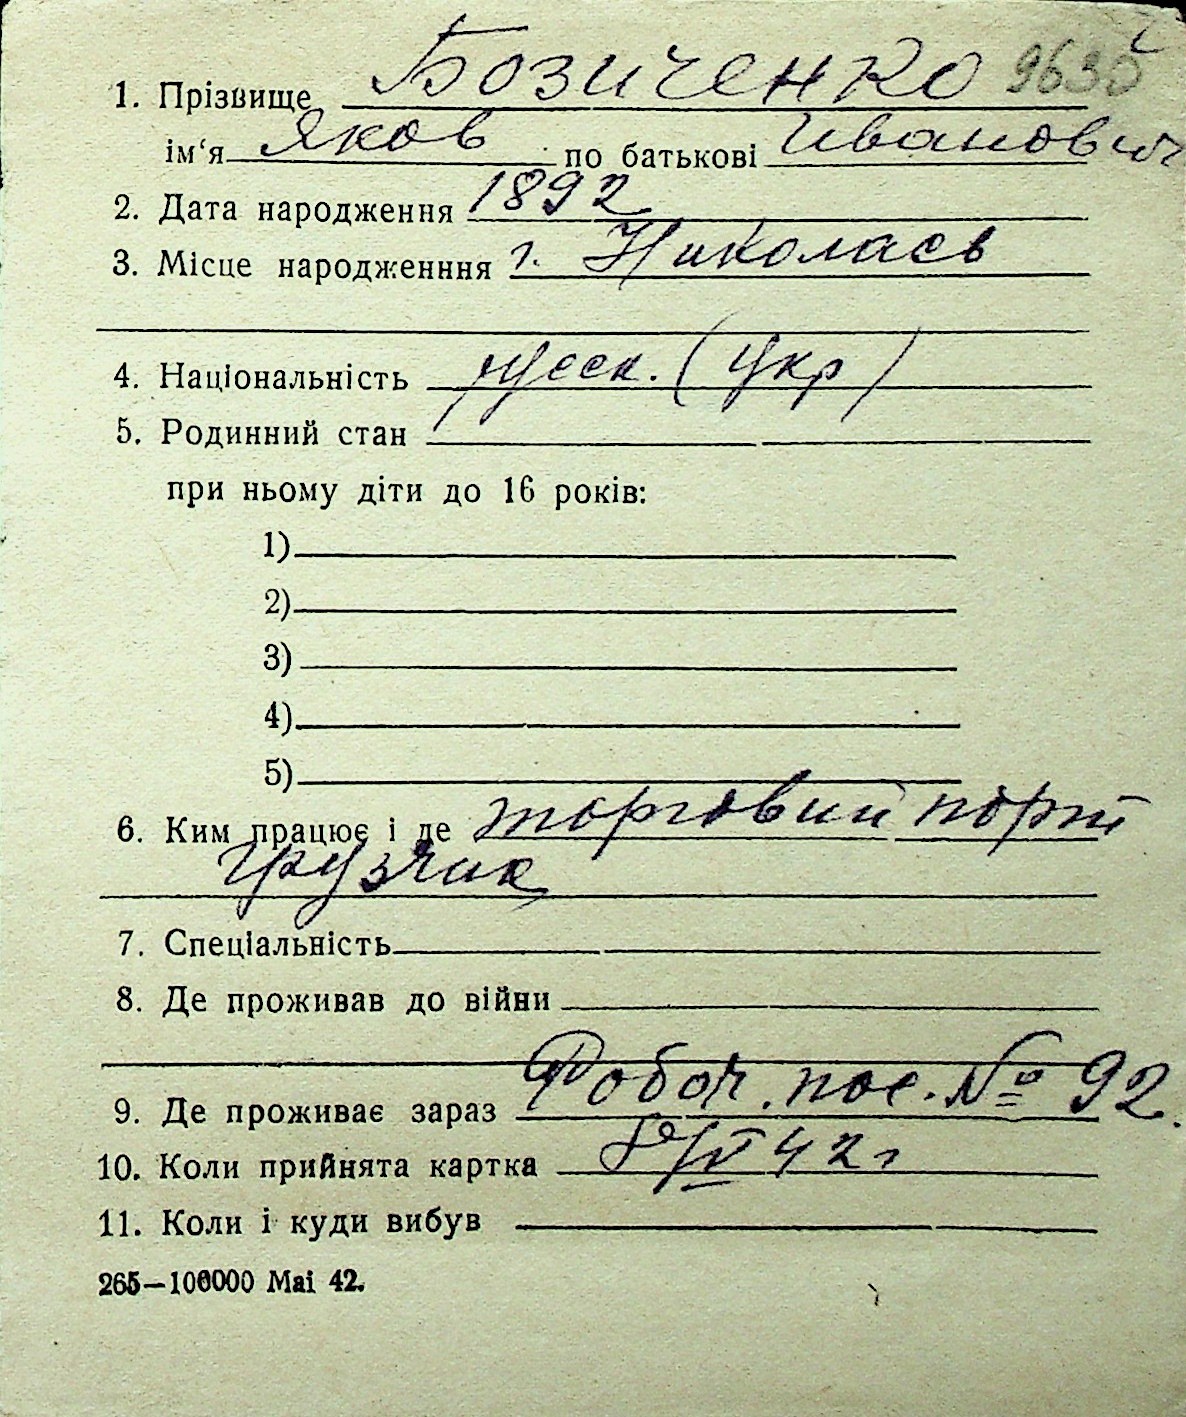 1. Прізвище Бозиченко 9635
ім'я Яков по батькові Иванович
2. Дата народження 1892
3. Місце народженння г. Николаев
4. Національність русск. (Укр)
5. Родинний стан
при ньому діти до 16 років:
1)
2)
3)
4)
5)
6. Ким працює і де торговий порт
грузчик
7. Спеціальність
8. Де проживав до війни
9. Де проживає зараз Рабоч. пос. № 92.
10. Коли прийнята картка 8/VI 42 г
11. Коли і куди вибув
265—100000 Mai 42.